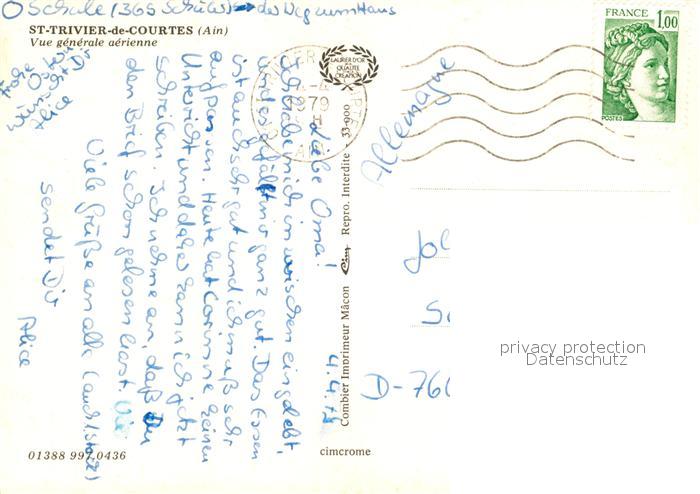 O Schule (365 Schüler) → der Wignumhaus
ST-TRIVIER-de-COURTES (Ain)
Vue générale aérienne
FRANCE 1,00
POSTES
LAURIER D'OR
QUALITÉ
CRÉATION
4-4
1979
AIN
Allemagne
4.4.79
Liebe Oma!
Ich habe mich inzwischen eingelebt,
und es gefällt mir ganz gut. Das Essen
ist auch sehr gut und ich muß sehr
aufpassen. Heute hat Corinne keinen
Unterricht und daher kann ich jetzt
schreiben. Ich nehme an, daß Du
den Brief schon gelesen hast.
Viele Grüße an alle
sendet Dir
Alice
Frohe Ostern
wünscht Dir
Alice
Combier Imprimeur Mâcon Cim Repro. Interdite 33-000
D-760
privacy protection
Datenschutz
01388 997 0436
cimcrome